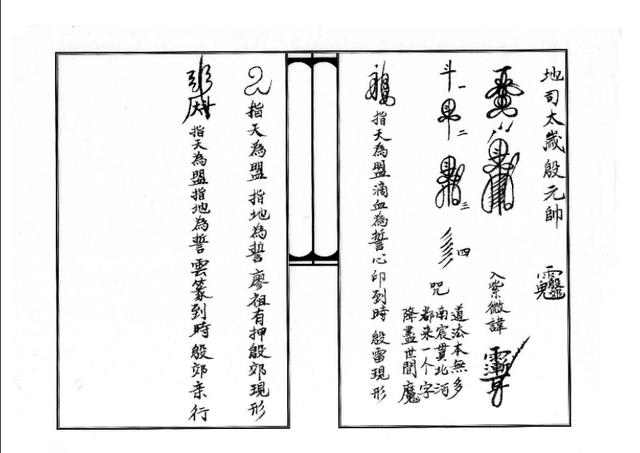 地司太歲殷元帥
入紫微諱
斗 一 二 三 四
咒
道法本無多
南宸貫北河
都來一个字
降盡世間魔
指天為盟滴血為誓心印到時殷雷現形
指天為盟指地為誓廖祖有押殷郊現形
指天為盟指地為誓雲篆到時殷郊亲行